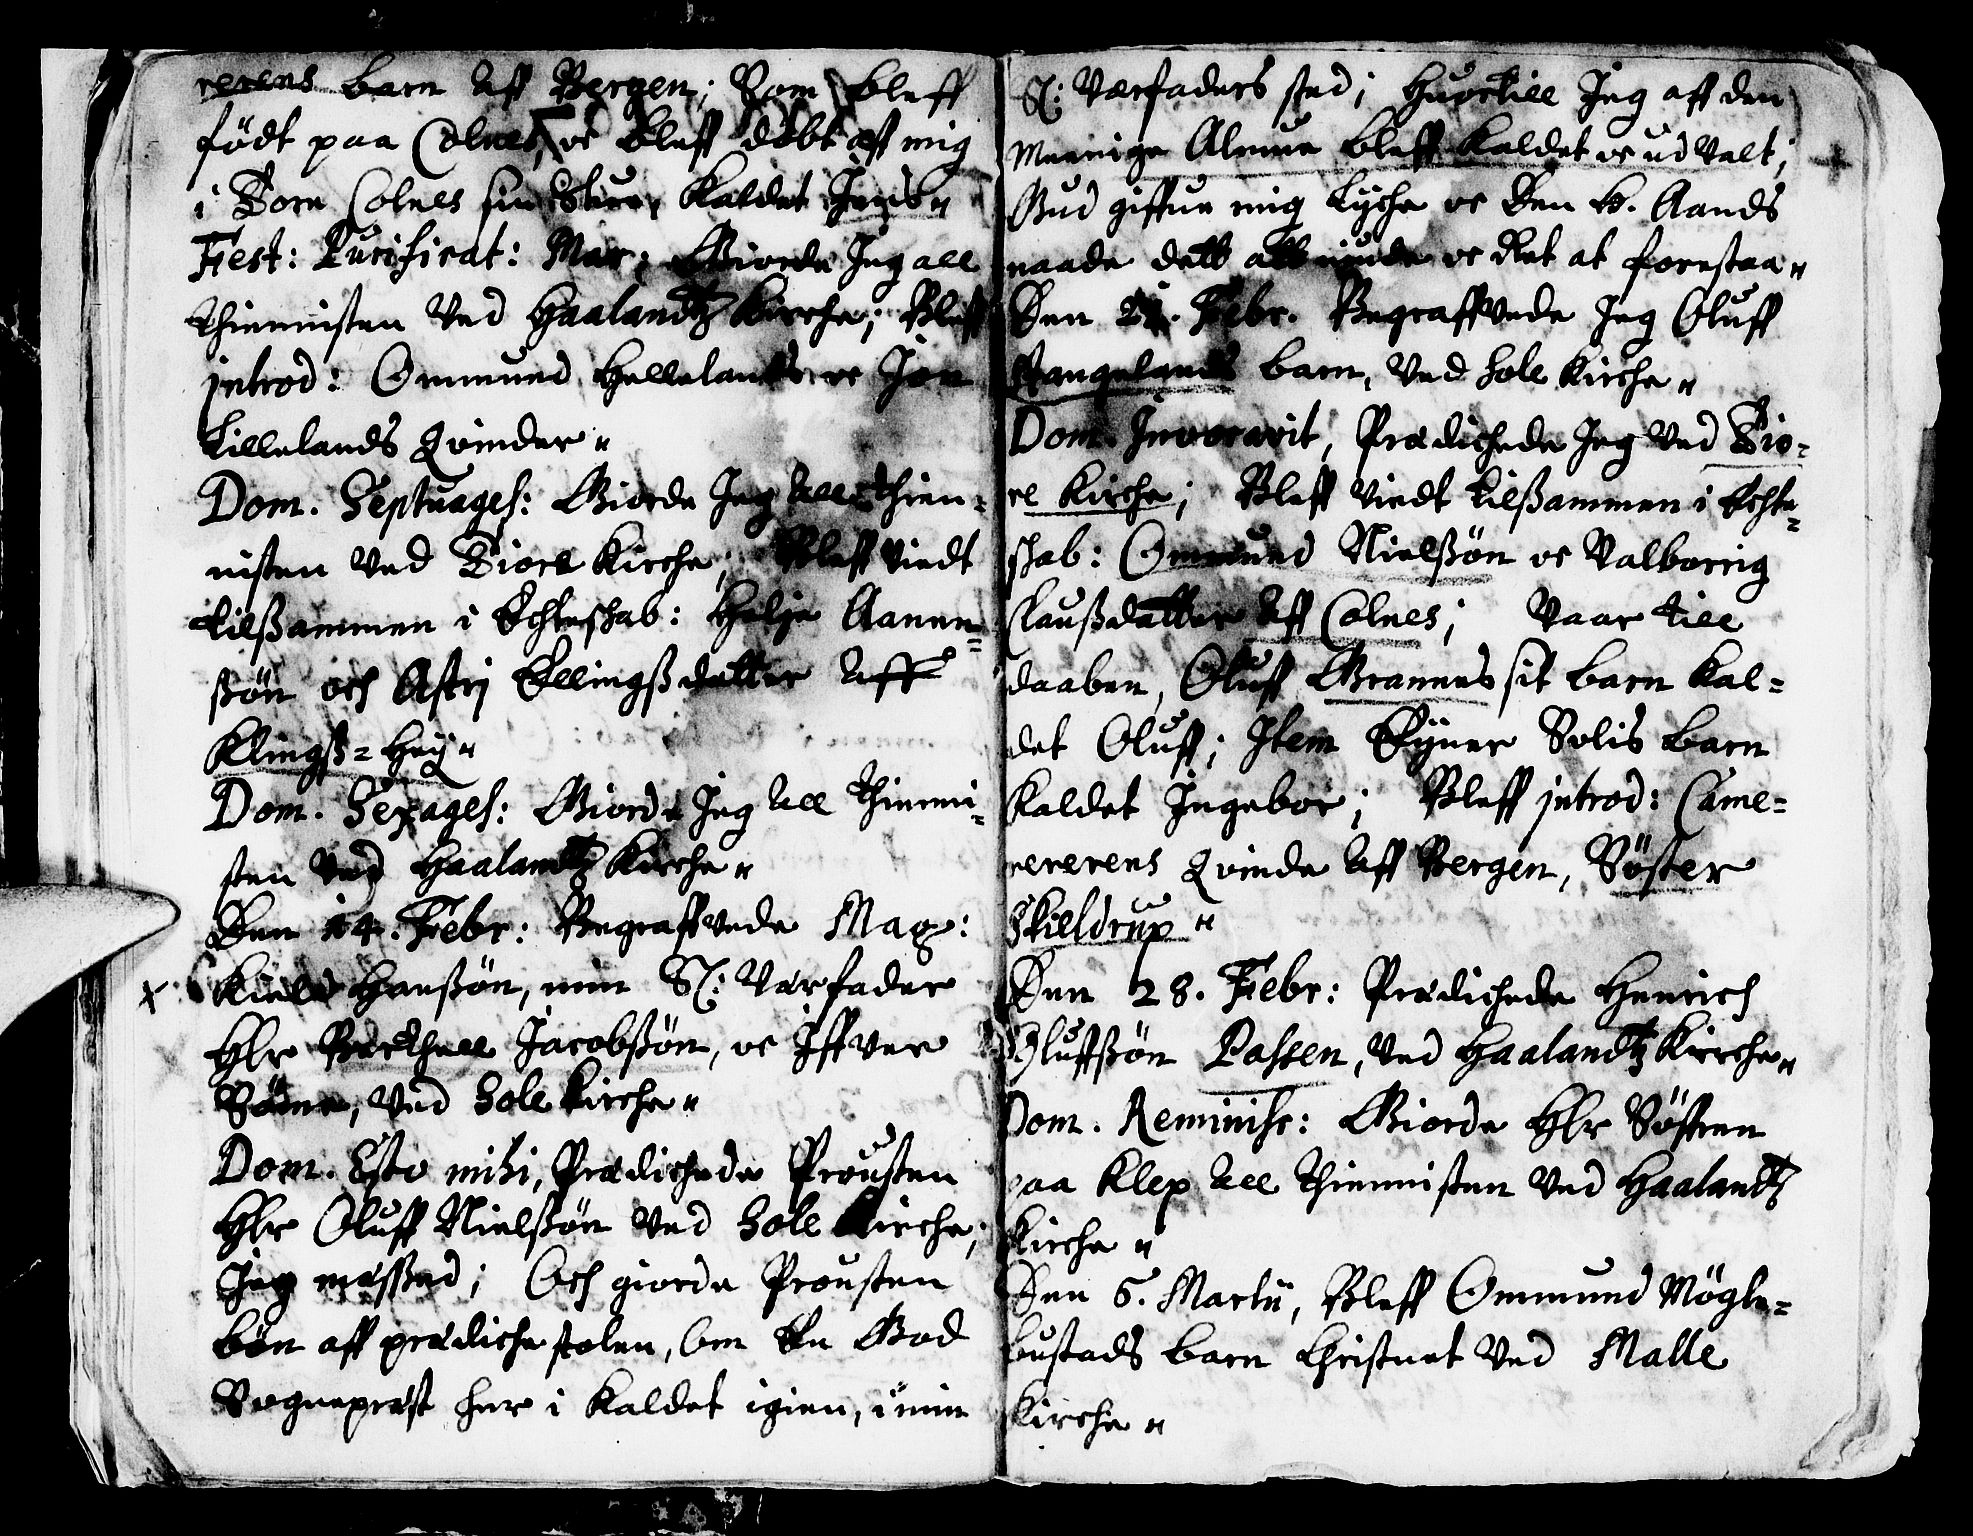 rerens barn aff Bergen; Som bleff
födt paa Colnes, oc bleff döbt aff mig
i Tore Colnes sin Stue, kaldet Jens"
Fest: Purificat: Mar; Giorde Jeg all
thiennisten Ved Haalandtz Kirche; Bleff
introd: Ommund Hellelands, oc Jon
Lillelands Qvinder"
Dom. Septuages: Giorde Jeg all thien=
nisten Ved Tiore Kirche; Bleff Viedt
tilßammen i Echteschab: Helje Aanen=
ßön och Astrj Ellingßdatter aff
Klingß=Hej"
Dom. Sexages: Giorde Jeg all thienni=
sten Ved Haalandtz Kirche"
Den 14. Febr: Begraffvede Mag:
Kield Hanßön, min Sl: Værfader
Hlr Berthell Jacobßön, oc Iffver
Söme, Ved Sole Kirche"
Dom. Esto mihi, Prædichede Prousten
Hlr Oluff Nielßön Ved Sole Kirche;
Jeg mæssed; Och giorde Prousten
bön aff prædichestolen, Om En God
Sogneprest her i Kaldet igien, i min
Sl: Værfaders sted; Huortill Jeg aff den
Meenige Almue bleff Kaldet oc ud Valt;
Gud giffue mig Lyche oc Den H. Aands
naade dett at oc Ret at forestaa"
Den 21. Febr. Begraffvede Jeg Oluff
Stangelands barn, Ved Sole Kirche"
Dom. Invocavit, Prædichede Jeg Ved Tio=
re Kirche; Bleff Viedt tilßammen i Echte=
schab: Ommund Nielßön oc Valborrig
Claußdatter aff Colnes; Vaar till
daaben, Oluff Grannes sit barn kal=
det Oluff; Item Eyner Solis barn
kaldet Ingebor; Bleff introd: Came=
rererens Qvinde aff Bergen, Söster
Skieldrup"
Den 28. Febr: Prædichede Henrich
Oluffßön Passen, Ved Haalandtz Kirche"
Dom. Reminisc: Giorde Hlr Söffren
paa Klep all thiennisten Ved Haalandtz
Kirche"
Den 6. Martii, Bleff Ommund Mögle=
bustads barn Christnet Ved Malle
Kirche"